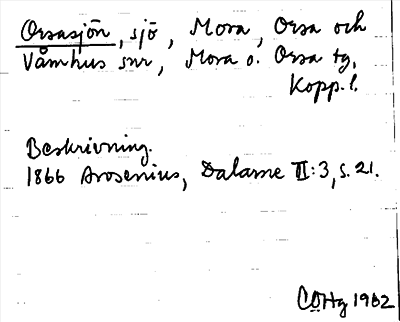 Orsasjön, sjö, Mora, Orsa och
Våmhus snr, Mora o. Orsa tg,
Kopp. l.
Beskrivning.
1866 Arosenius, Dalarne II:3, s. 21.
COHg 1962